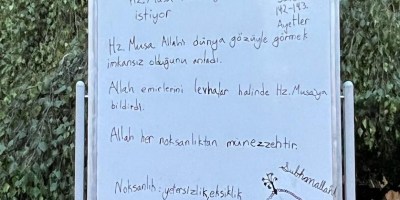 istiyor
192-193.
Ayetler
Hz. Musa Allah'ı dünya gözüyle görmek
imkansız olduğunu anladı.
Allah emirlerini levhalar halinde Hz. Musa'ya
bildirdi.
Allah her noksanlıktan münezzehtir.
Subhanallah
Noksanlık: yetersizlik, eksiklik